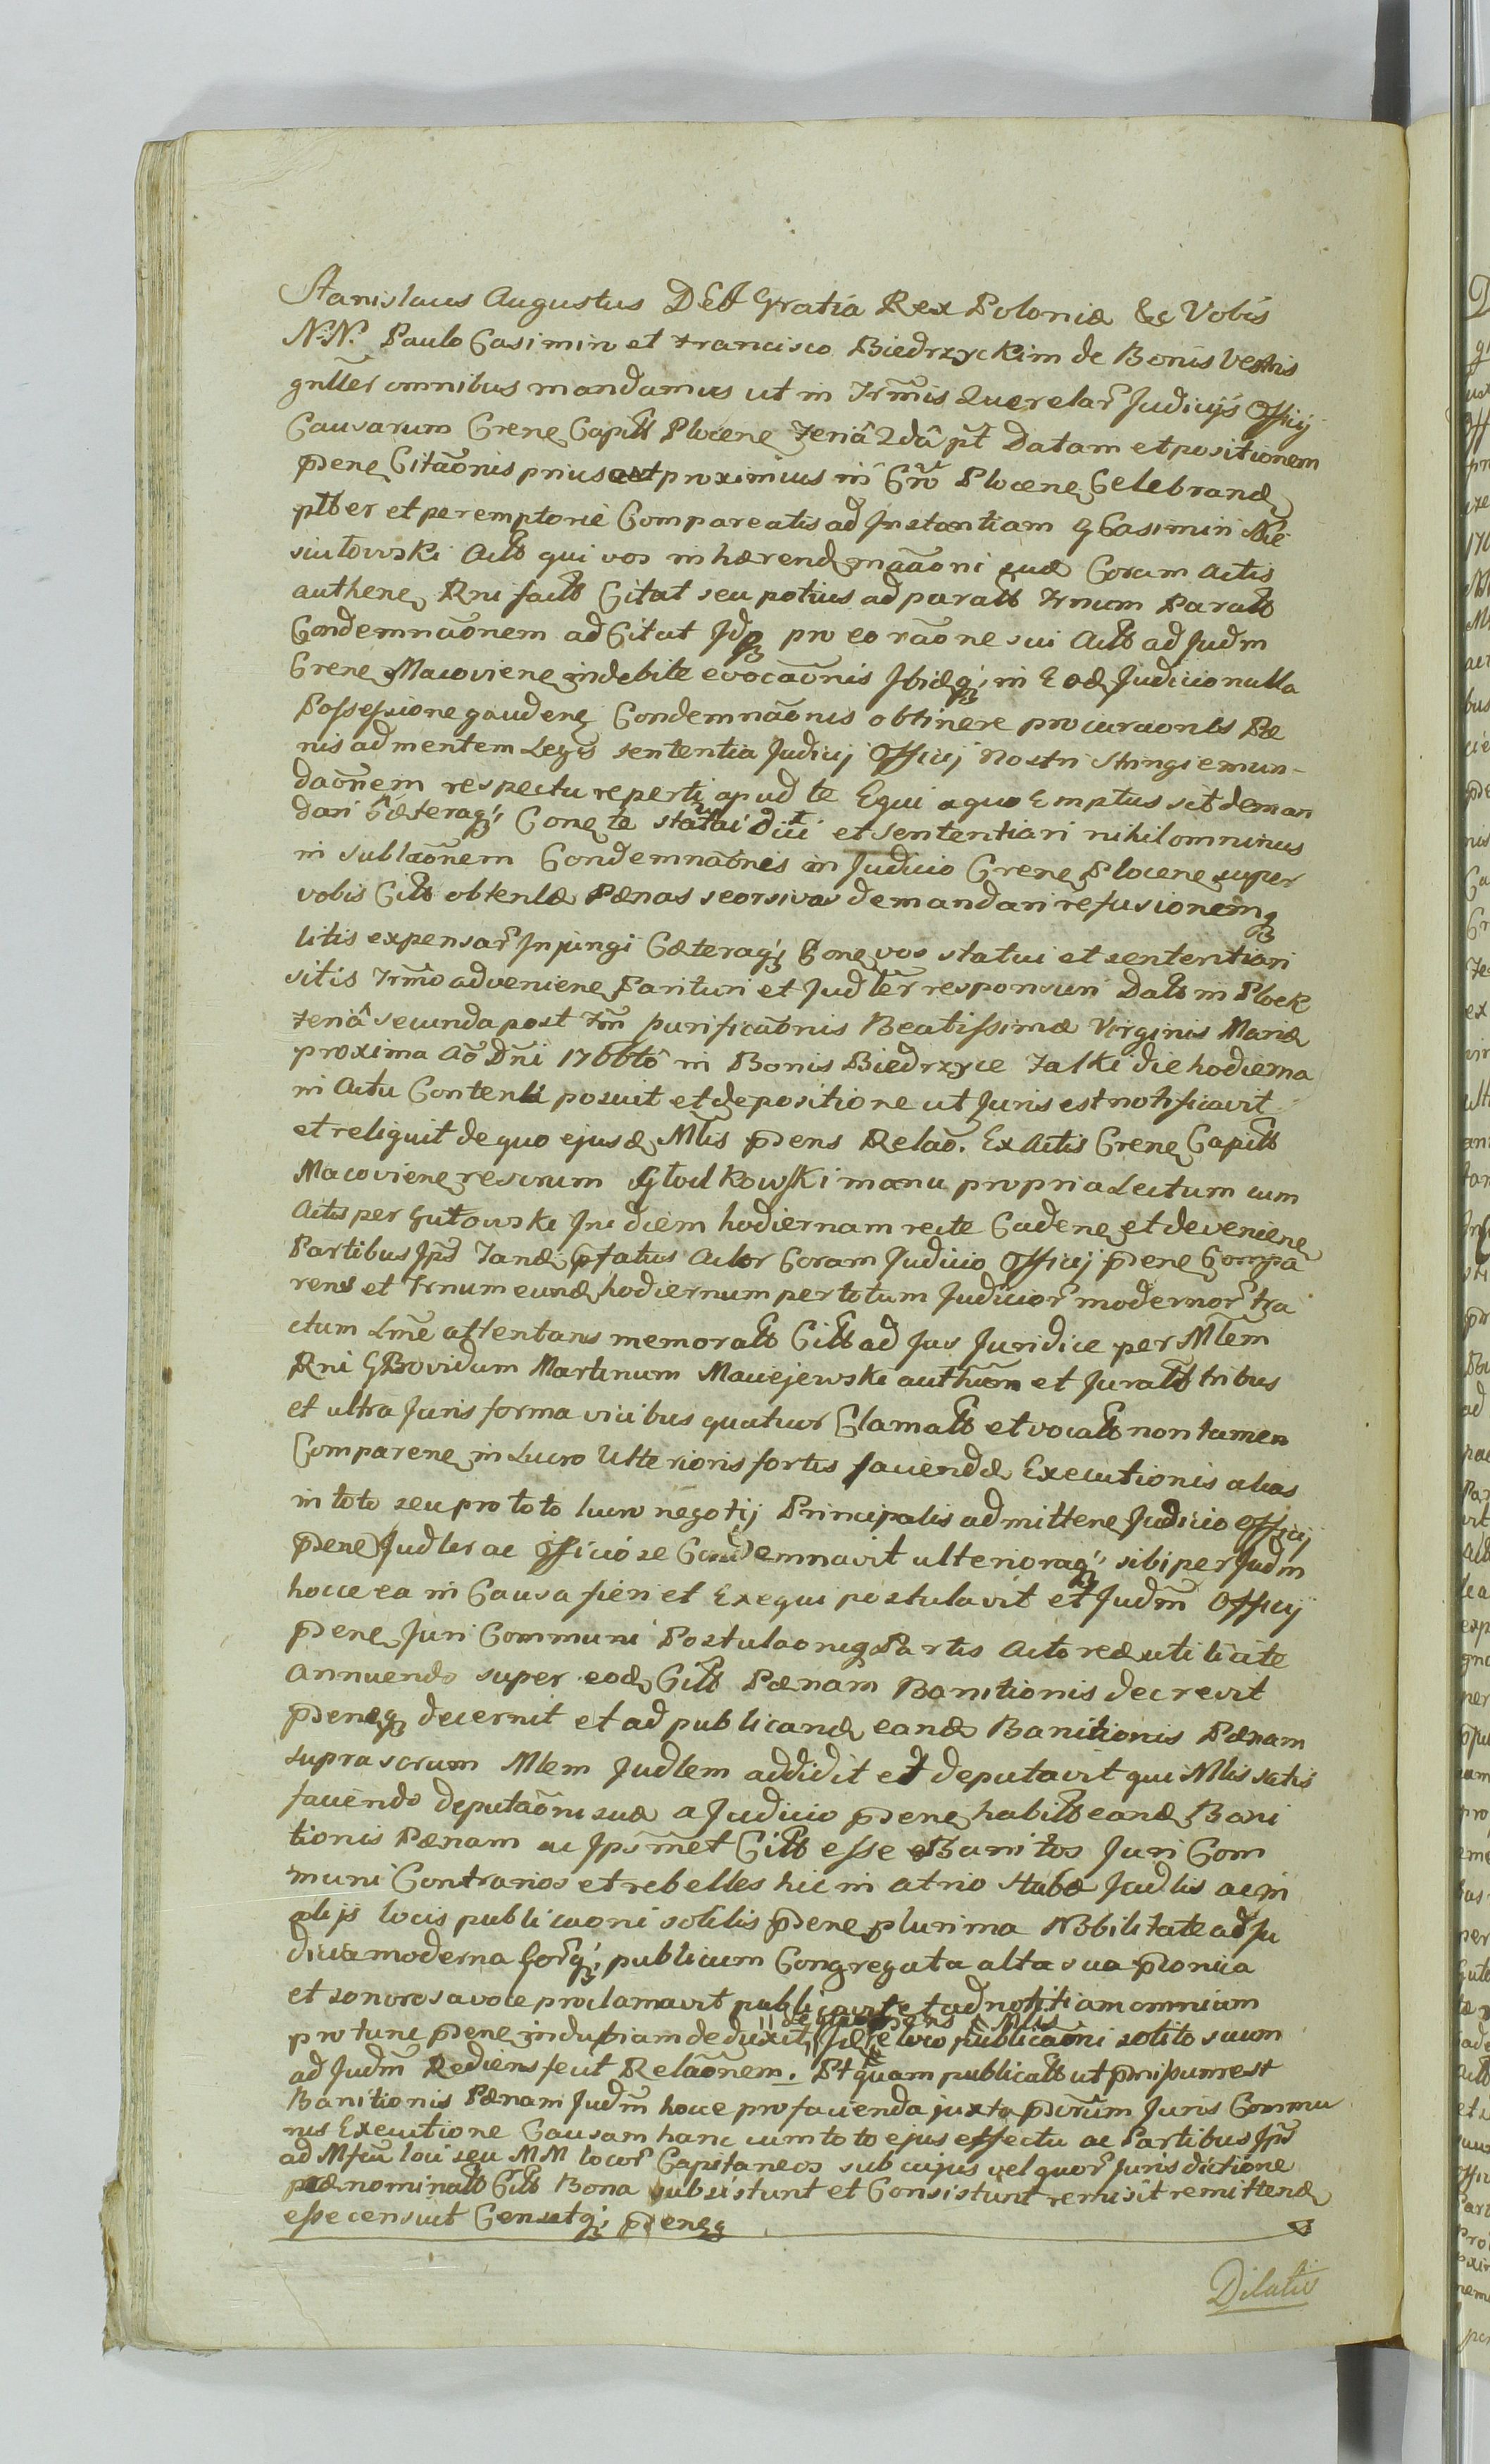 Stanislaus Augustus DEI Gratia Rex Poloniæ &c Vobis
N.N. Paulo Casimiro et Francisco Biedrzyckim de Bonis Vestris
gnller omnibus mandamus ut in Trmis Querelar Judicijs Officij
Causarum Crene Capitt Plocene Feriâ 2dâ pt Datam et positionem
Psene Citaonis prius aut proximius in Cro Plocene Celebrand
ptter et peremptorie Compareatis ad Instantiam G Casimiri Nie
siutowski Actt qui vos inhærend maaoni suæ Coram Actis
authene Rni factt Citat seu potius ad paratt Trnum Paratt
Condemnaonem adCitat Idq pro eo raone sui Actt ad Judm
Crene Macoviene indebite evocaonis Ibidq; in Eod Judicio nulla
Possessione gaudene Condemnaonis obtinere procuraonis Pæ
nis ad mentem Legis sententia Judicij Officij Nostri Stringi emun-
daonem respectu reperti apud te Equi a quo Emptus sit deman
dari Cæteraq; Cone te statui dici et sententiari nihilominus
in sublaonem Condemnaonis in Judicio Crene Plocene super
vobis Citt obtentæ Pænas seorsivas demandari refusionemq
litis expensar Injungi Cæteraq; Cone vos statui et sententiari
sitis Trmo adveniene Parituri et Judler responsuri Datt in Plock
Feriâ secunda post Fm Purificaonis Beatissimæ Virginis Mariæ
proxima Ao Dni 1766to in Bonis Biedrzyce Falki die hodierna
in Actu Contenti posuit et de positione ut Juris est notificavit
et reliquit de quo ejusd Mlis psens Relao. Ex Actis Crene Capitt
Macoviene rescrum Głodkowski manu propria Lectum cum
Actis per Gutowski In diem hodiernam recte Cadene et deveniene
Partibus Ips Tand pfatus Actor Coram Judicio Officij psene Compa
rens et Trnum eund hodiernum per totum Judicior modernor tra
ctum Lme attentans memoratt Citt ad Jus Juridice per Mlem
Rni GProvidum Martinum Maciejewski authum et Juratt tribus
et ultra Juris forma vicibus quatuor Clamatt et vocatt non tamen
Comparene in Lucro Ulterioris fortis faciendæ Executionis alias
in toto seu pro toto lucro negotij Principalis admittene Judicio Officij
psene Judler ac Officiose Condemnavit ulterioraq; sibi per Judm
hocce ea in Causa fieri et Exequi postulavit et Judm Officij
psene Juri Communi Postulaoniq Partis Actoreæ uti licite
annuendo super eod Citt Pænam Banitionis decrevit
pseneq decernit et ad publicand eand Banitionis Pænam
suprascrum Mlem Judlem addidit et deputavit qui Mlis satis
faciendo deputaoni suæ a Judicio psene habitt eand Bani
tionis Pænam ac Ipsmet Citt esse Banitos Juri Com
muni Contrarios et rebelles hic in atrio Stubæ Judlis ac in
alijs locis publicaoni solitis psene plurima Nobilitate ad Ju
dicia moderna Forq; publicum Congregata alta sua pconia
et sonorosa voce proclamavit publicavit et ad notitiam omnium
pro tunc psene indubiam deduxit, Idq e loco publicaoni solito suum
ad Judm Rediens fecit Relaonem. Pt quam publicatt ut pmissum est
Banitionis Pænam Judm hocce pro facienda juxta pscrum Juris Commu
nis Executione Causam hanc cum toto ejus effectu ac Partibus Ips
ad Mfcum loci seu MM locor Capitaneos sub cujus vel quor Jurisdictione
prænominatt Citt Bona subsistunt et Consistunt remisit remittend
esse censuit Censetq; pseneq
Dilatio